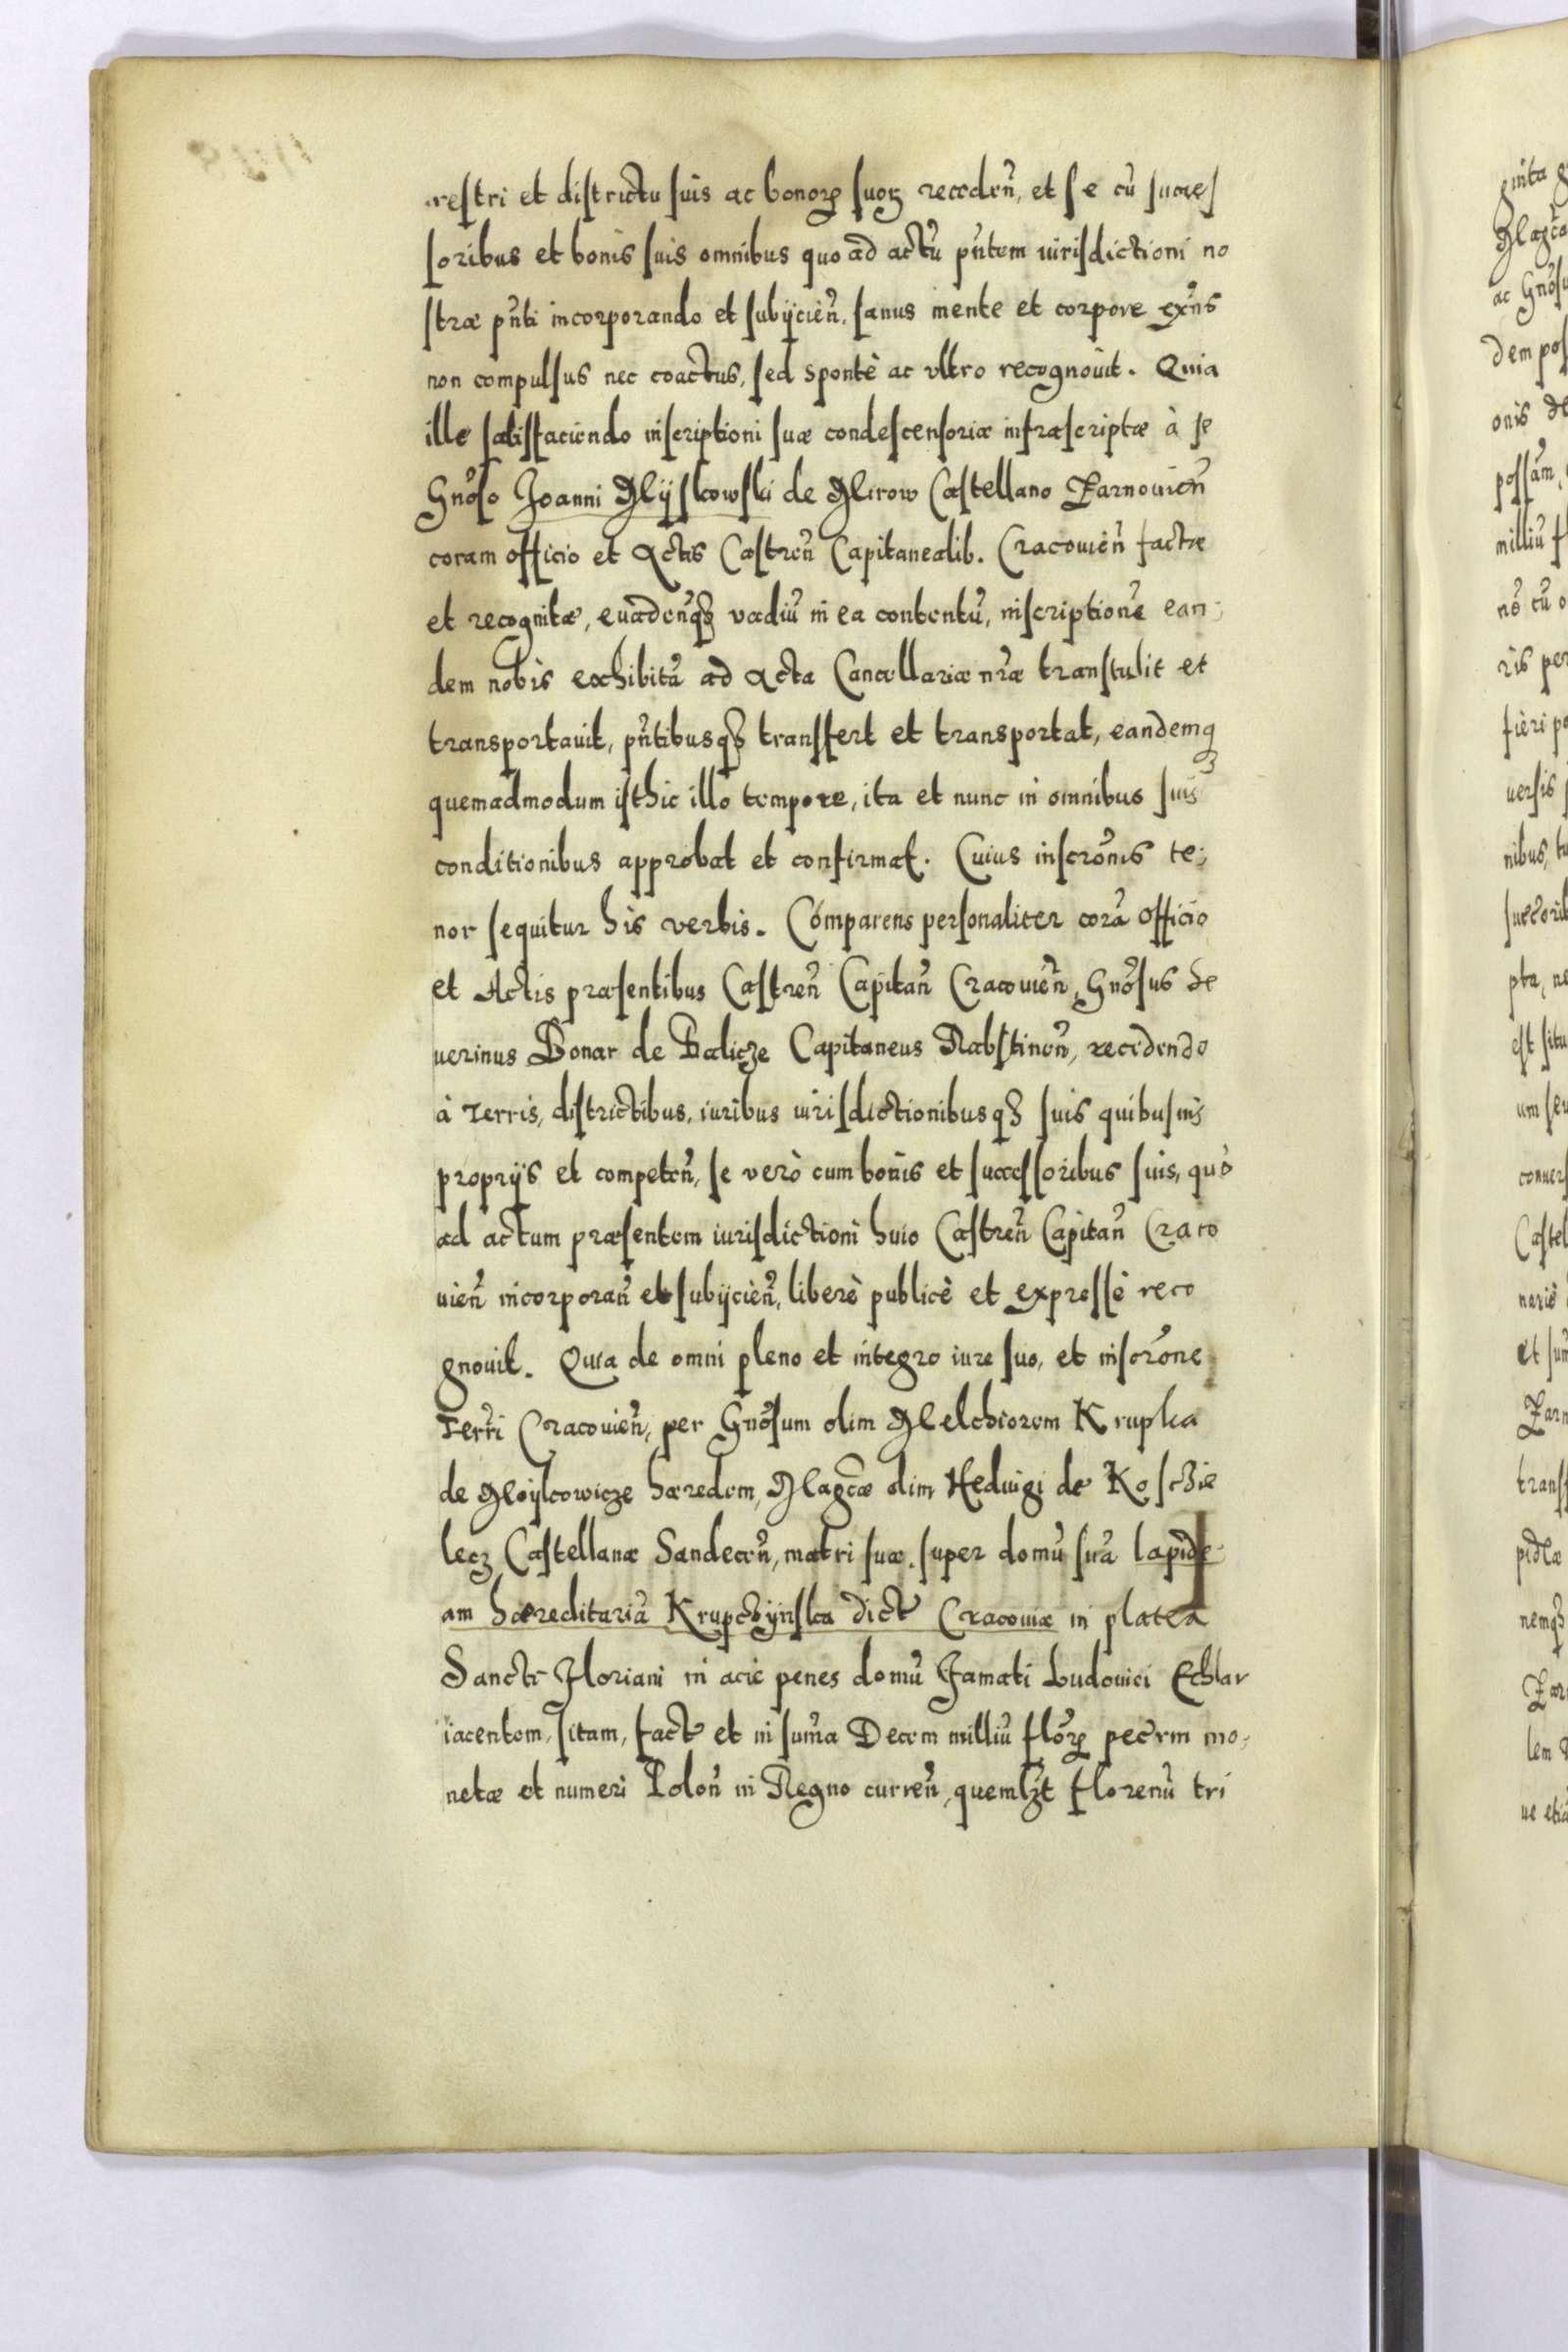 restri et districtu suis ac bonorꝝ suoꝝ recedeñ, et se cũ succes
soribus et bonis suis omnibus quo ad actũ pñtem iurisdictioni no
stræ pñti incorporando et subijcieñ, sanus mente et corpore exñs
non compulsus nec coactus, sed spontè ac ultro recognovit. Quia
ille satisfaciendo inscriptioni suæ condescensoriæ infrascriptæ à se
Gnoso Joanni Myskowski de Mirow Castellano Zarnovień
coram officio et Actis Castreñ Capitanealib. Cracovieñ factæ
et recognitæ, evadenqꝫ vadiũ in ea contentũ, inscriptionẽ ean-
dem nobis exhibitã ad Acta Cancellariæ nræ transtulit et
transportavit, pñtibusqꝫ transfert et transportat, eandemqꝫ
quemadmodum isthic illo tempore, ita et nunc in omnibus suis
conditionibus approbat et confirmat. Cuius inscronis te-
nor sequitur his verbis. Comparens personaliter corã Officio
et Actis præsentibus Castreñ Capitañ Cracovieñ, Gnosus Se
verinus Bonar de Balicze Capitaneus Rabstineñ, recedendo
à Terris, districtibus, iuribus iurisdictionibusqꝫ suis quibusvis
proprijs et competeñ, se verò cum bonis et successoribus suis, quò
ad actum præsentem iurisdictioni huic Castreñ Capitañ Craco
vieñ incorporañ et subijcieñ, liberè publicè et expressè reco
gnovit. Quia de omni pleno et integro iure suo, et inscrone
Terrri Cracovieñ, per Gnosum olim Melchiorem Krupka
de Moyskowicze hæredem, Magcæ olim Hedvigi de Koschie
lecz Castellanæ Sandeceñ, matri suæ, super domũ suã lapide-
am hæreditariã Krupczynska dict Cracoviæ in platea
Sancti Floriani in acie penes domũ Famati Ludovici Echlar
iacentem, sitam, fact et in sum̃a Decem milliũ florꝝ pecrm mo-
netæ et numeri Poloñ in Regno curreñ, quemlzt florenũ tri